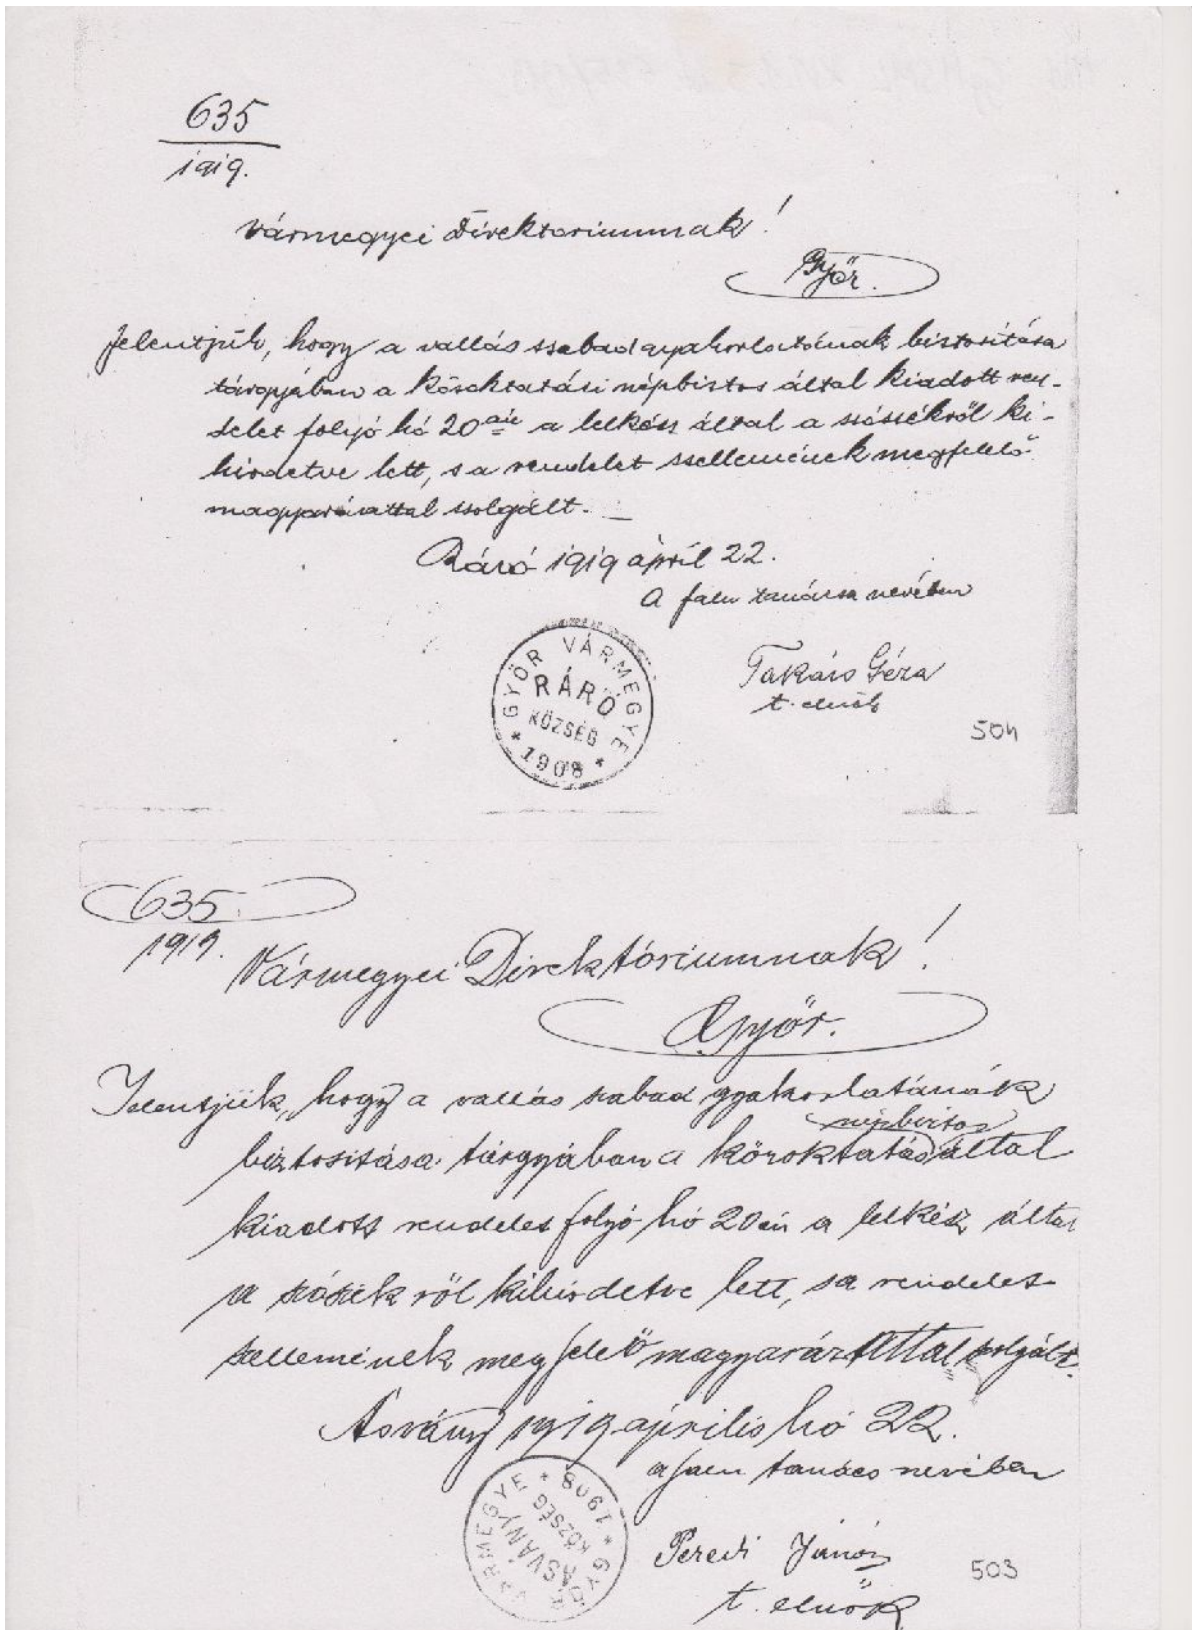 635
1919.
Vármegyei Direktoriumnak!
Győr.
Jelentjük, hogy a vallás szabad gyakorlatának biztosítása
tárgyában a közoktatási népbiztos által kiadott ren-
delet folyó hó 20 án a lelkész által a szószékről ki-
hirdetve lett, s a rendelet szellemének megfelelő
magyarázattal szolgált.
Ráró 1919 april 22.
A falu tanácsa nevében
GYŐR VÁRMEGYE
RÁRÓ
KÖZSÉG
* 1908 *
Takács Géza
t. elnök
504
635
1919.
Vármegyei Direktóriumnak!
Győr.
Jelentjük, hogy a vallás szabad gyakorlatának
népbiztos
biztositása tárgyában a közoktatás által
kiadott rendelet folyó hó 20 án a lelkész által
a szószékről kihirdetve lett, s a rendelet
szellemének megfelelő magyarázattal szolgált.
Ásvány 1919 április hó 22.
a falu tanács nevében
GYŐR VÁRMEGYE
ÁSVÁNY
KÖZSÉG
* 1908 *
Peredi János
t. elnök
503